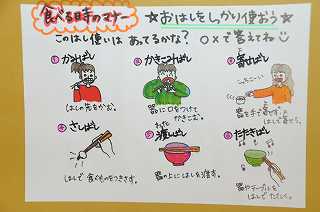 食べる時のマナー
☆おはしをしっかり使おう☆
このはし使いは あってるかな? ○×で答えてね
① かみばし
はしの先をかむ。
② かきこみばし
器に口をつけて
かきこむ。
③ 寄せばし
器を手で寄せず、
はしで寄せる。
④ さしばし
はしで 食べものをつきさす。
⑤ 渡しばし
わた
器の上にはしを渡す。
⑥ たたきばし
器やテーブルを
はしで たたく。